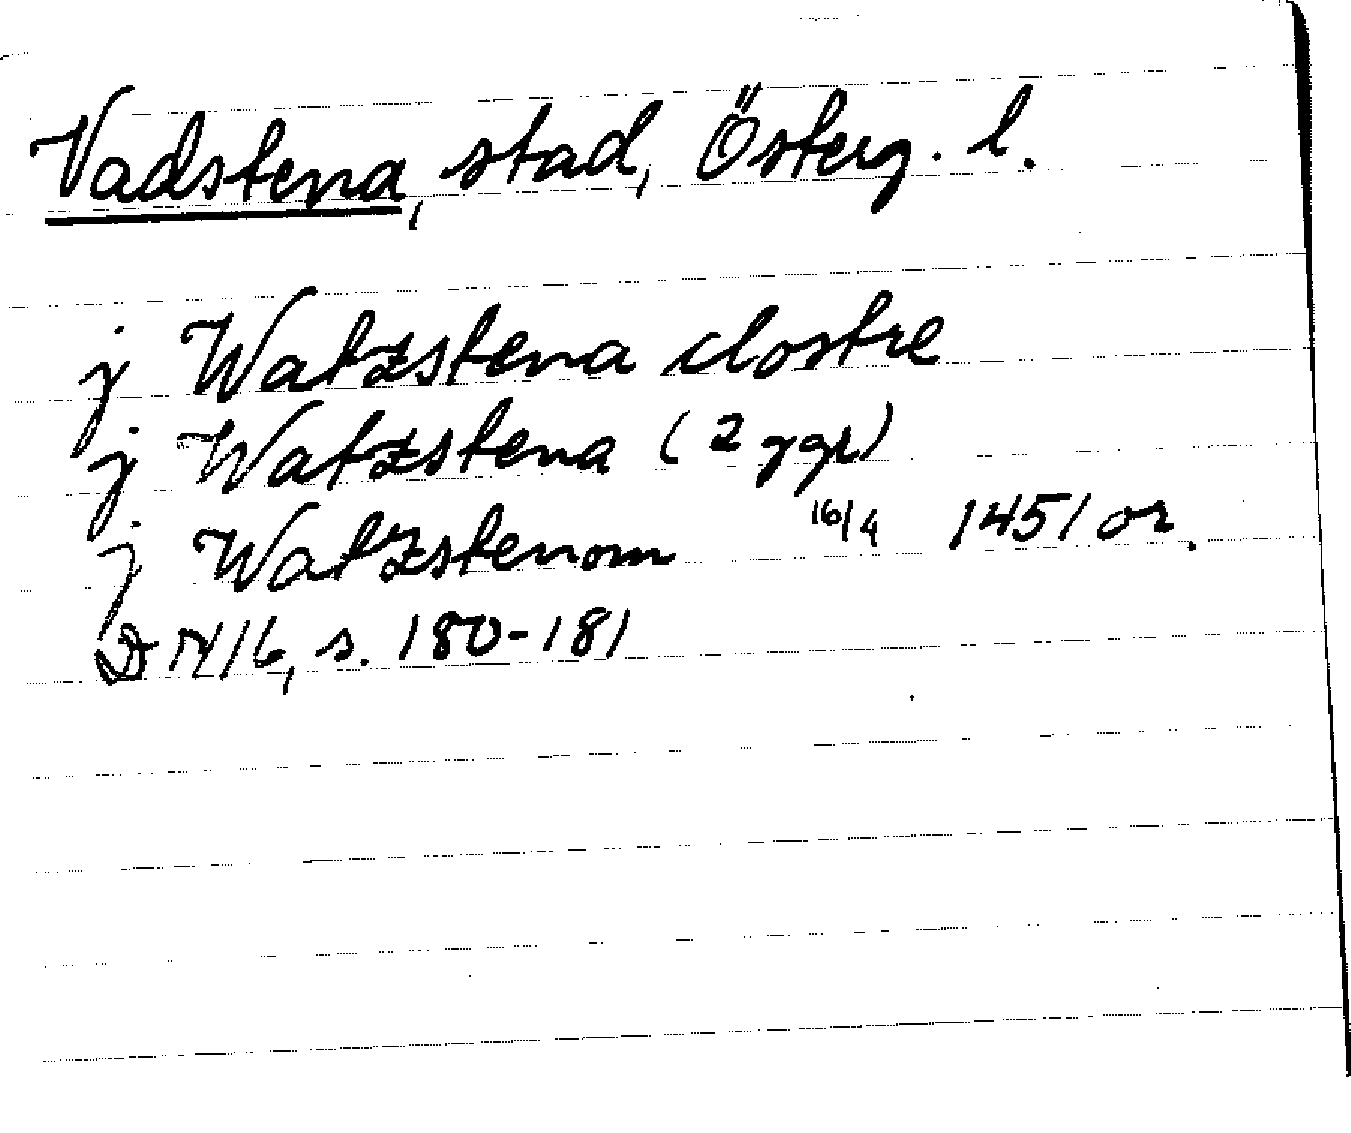 Vadstena, stad, Österg. l.
j Watzstena clostre
j Watzstena (2 ggr)
j Watzstenom 16/4 1451 or.
DN 16, s. 180-181